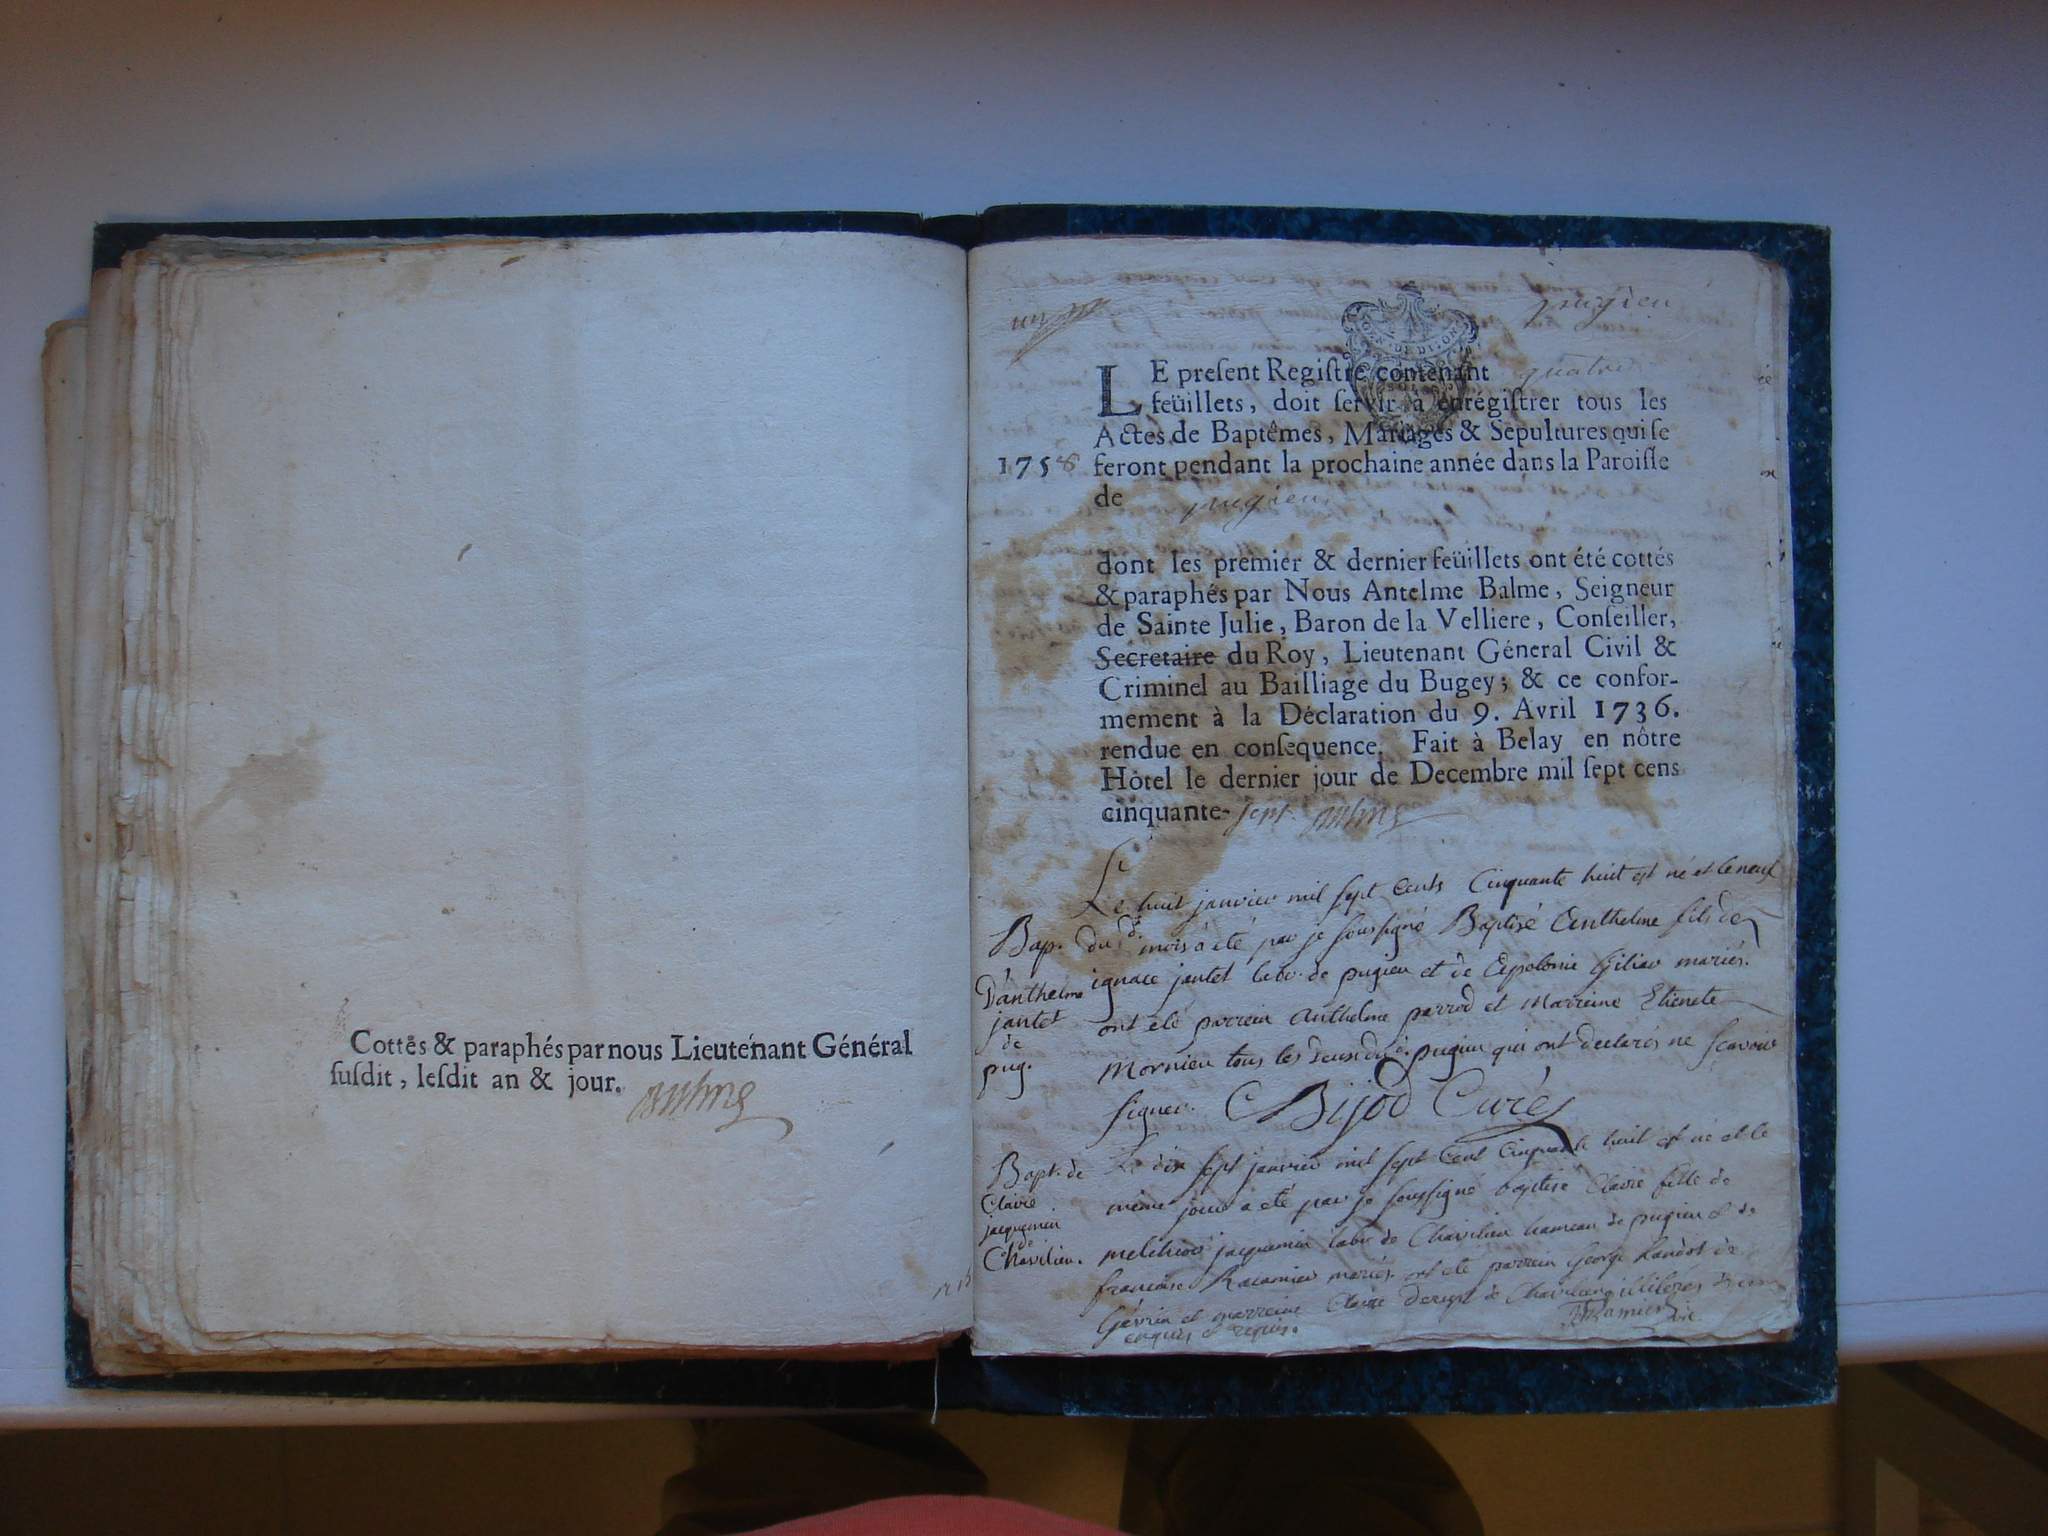 Cottés & paraphés par nous Lieutenant Général
susdit, lesdit an & jour.
pugieu
LE present Registre contenant quatre
feüillets, doit servir à enrégistrer tous les
Actes de Baptêmes, Mariages & Sepultures qui se
1758 feront pendant la prochaine année dans la Paroisse
de pugieu
dont les premier & dernier feüillets ont été cottés
& paraphés par Nous Antelme Balme, Seigneur
de Sainte Julie, Baron de la Velliere, Conseiller,
Secretaire du Roy, Lieutenant Géneral Civil &
Criminel au Bailliage du Bugey; & ce confor-
mement à la Déclaration du 9. Avril 1736.
rendue en consequence. Fait à Belay en nôtre
Hôtel le dernier jour de Decembre mil sept cens
cinquante-sept
Bap.
D'anthelme
jantet
de
pug.
Le huit janvier mil sept cents Cinquante huit est né et le neuf
du d. mois a eté par je soussigné Baptisé Anthelme fils de
ignace jantet labr. de pugieu et de mariés.
ont eté parrein Anthelme perrod et Marreine Etienete
Mornieu tous les deux dud. pugieu qui ont declarés ne scavoir
signer. Bijod Curé
Bapt. de
Claire
jacquemin
de
Chavilieu.
Le dix sept janvier mil sept Cent Cinquante huit est né et le
même jour a eté par je soussigné baptisé Claire fille de
melchior jacquemin labr de Chavilieu hameau de pugieu & de
francoise mariés. ont eté parrein George de
et marreine Claire de
enquis & requis.